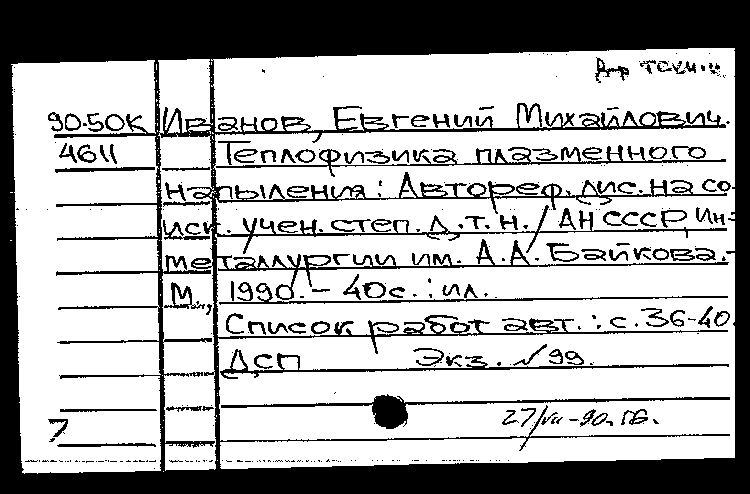 Д-р техн. н.
90-50К Иванов, Евгений Михайлович.
4611 Теплофизика плазменного
напыления: Автореф. дис. на со-
иск. учен. степ. д.т.н. / АН СССР, Ин-
металлургии им. А.А. Байкова.-
М., 1990. - 40с.: ил.
Список работ авт.: с.36-40.
ДСП Экз. №99.
7 27/VII-90.